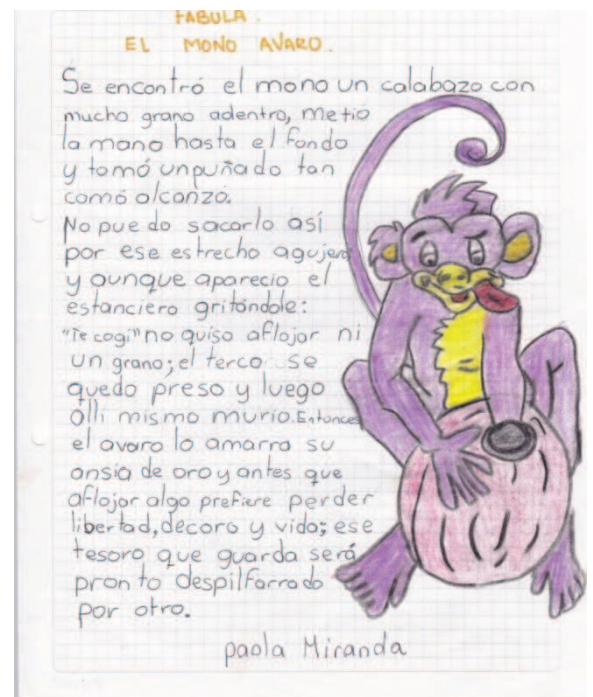 FABULA.
EL MONO AVARO.
Se encontró el mono un calabazo con
mucho grano adentro, metió
la mano hasta el fondo
y tomó un puñado tan
como alcanzó.
No puedo sacarlo así
por ese estrecho agujero
y aunque aparecio el
estanciero gritándole:
"Te cogi" no quiso aflojar ni
un grano; el terco se
quedo preso y luego
alli mismo murio. Entonces
el avaro lo amarra su
ansia de oro y antes que
aflojar algo prefiere perder
libertad, decoro y vida; ese
tesoro que guarda será
pronto despilfarrado
por otro.
paola Miranda